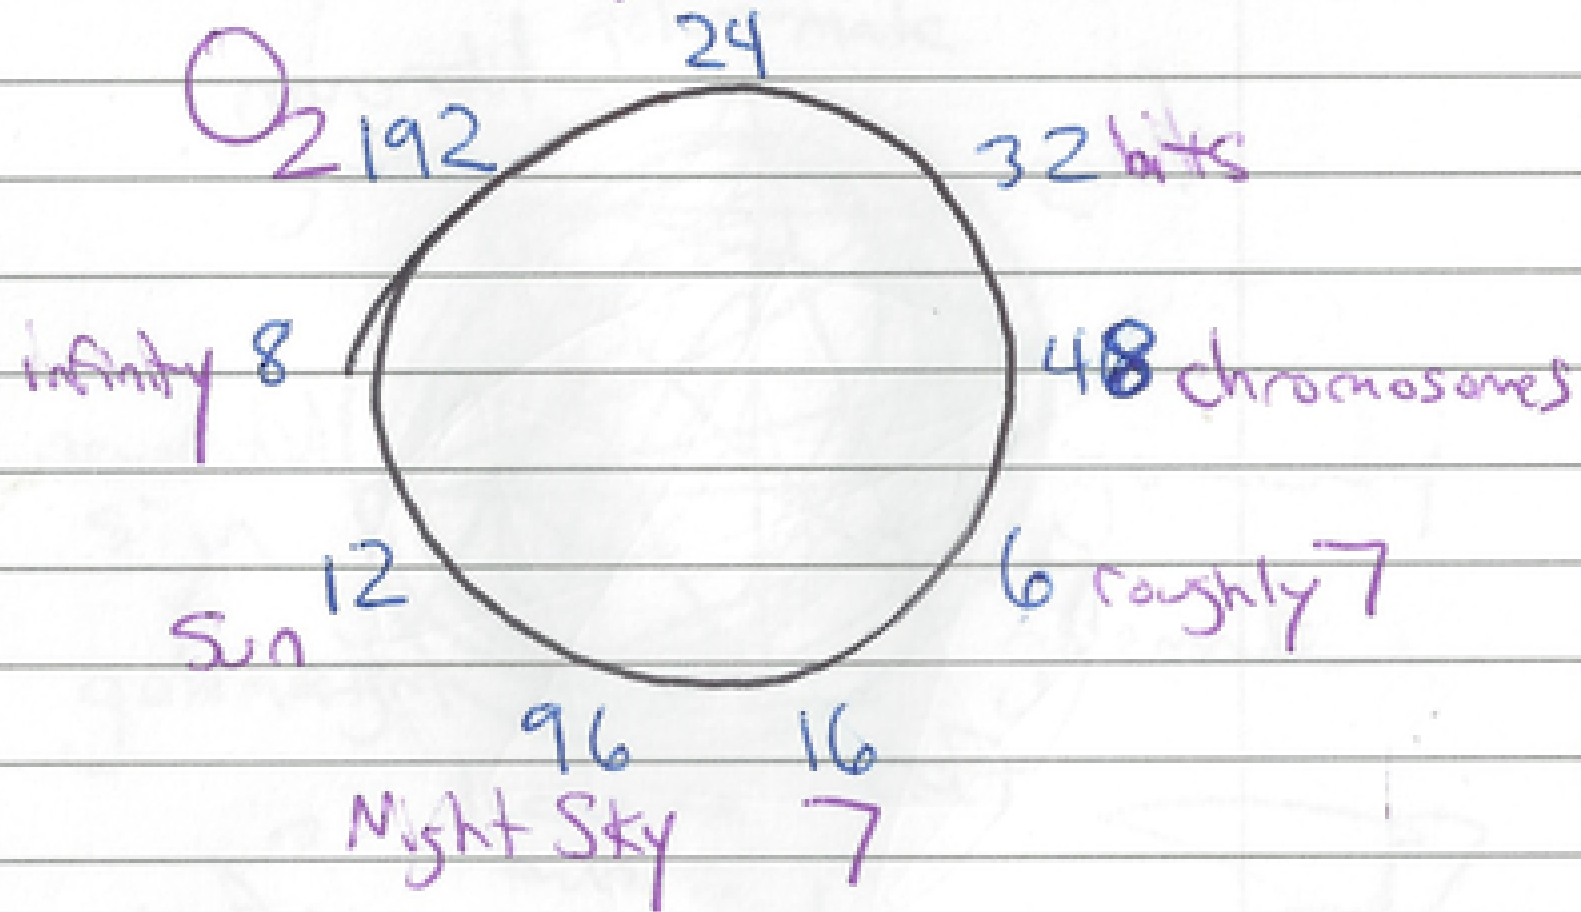 24
O2 192
32 bits
infinity 8
48 chromosomes
12
6 roughly 7
Sun
96
16
Night Sky
7